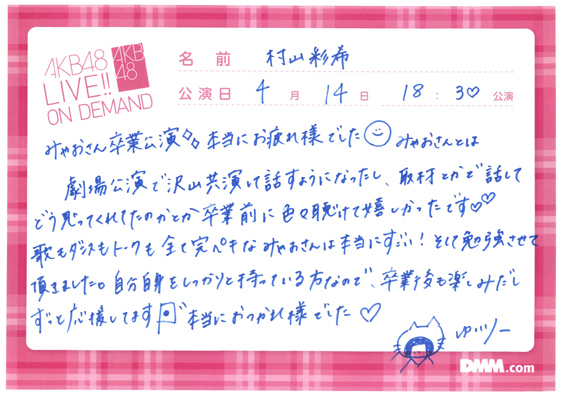 AKB48
LIVE!!
ON DEMAND
AKB
48
名前 村山彩希
公演日 4月14日 18:30♡公演
みゃおさん卒業公演 本当にお疲れ様でした みゃおさんとは
劇場公演で沢山共演して話すようになったし、取材とかで話して
どう思ってくれてたのかとか卒業前に色々聴けて嬉しかったです♡♡
歌もダンスもトークも全て完ペキなみゃおさんは本当にすごい!そして勉強させて
頂きました。自分自身をしっかりと持っている方なので、卒業後も楽しみだし
ずっと応援してます 本当におつかれ様でした♡
ゆいりー
DMM.com